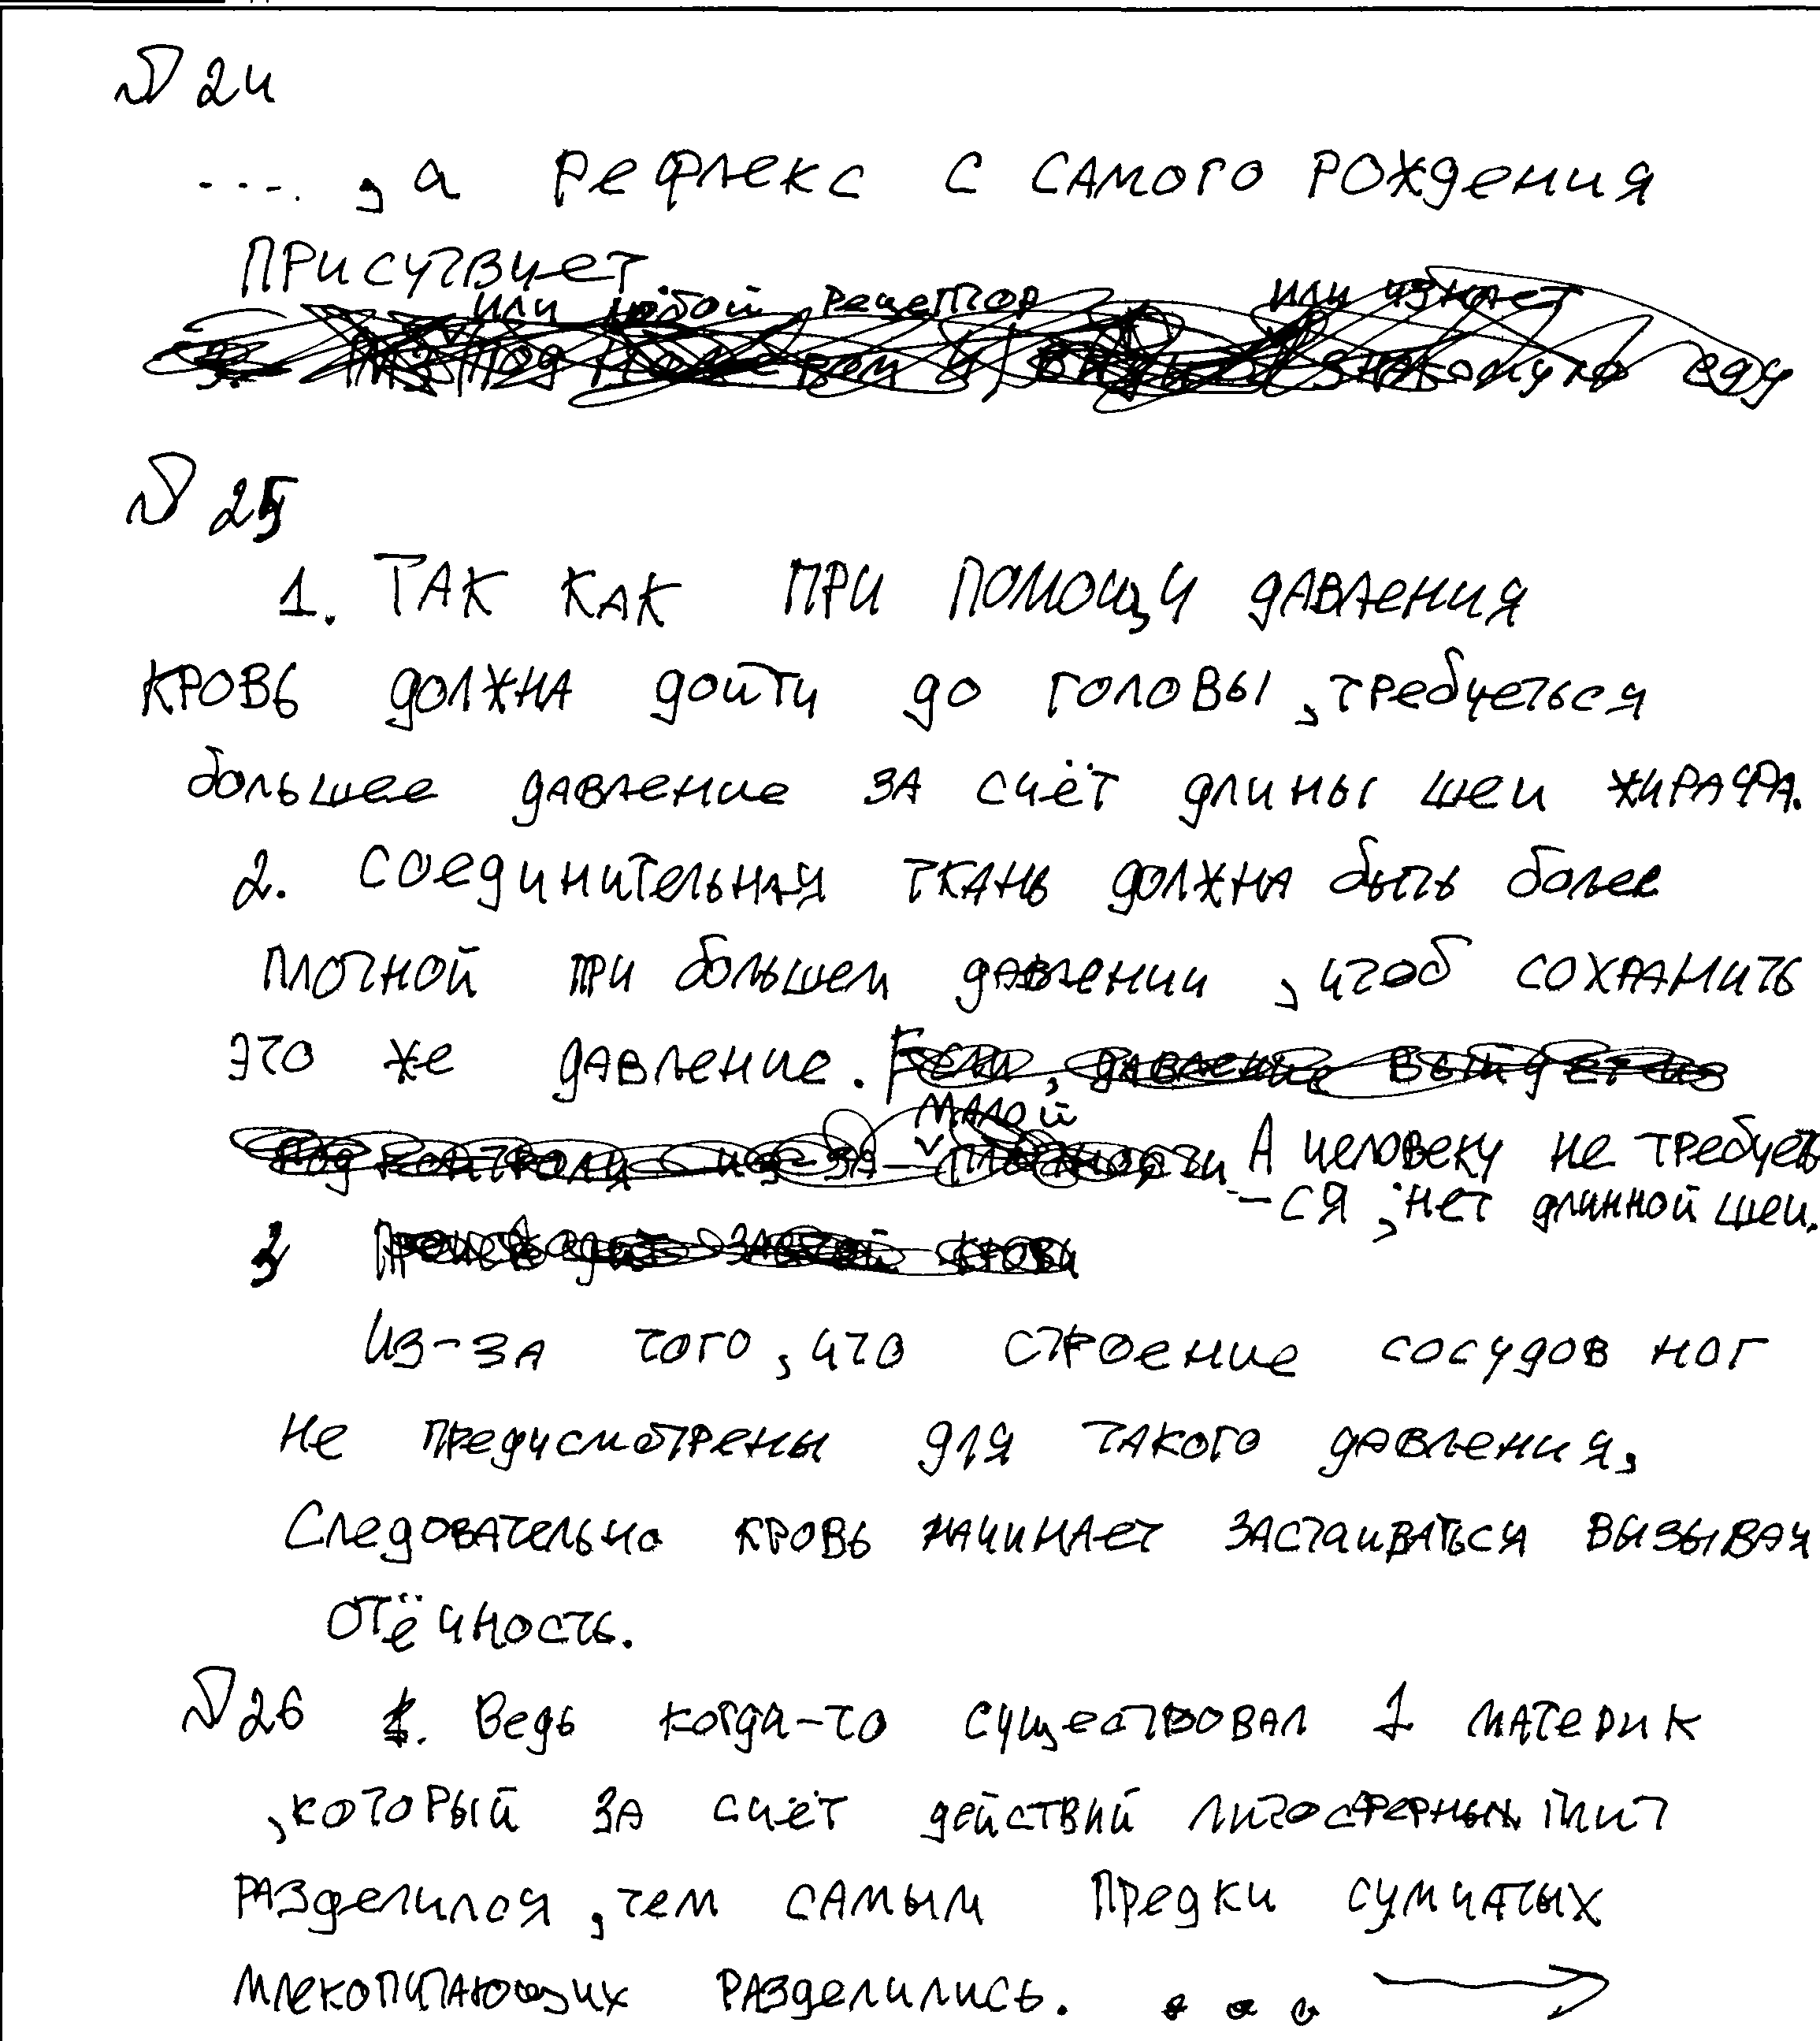 № 24
...., а рефлекс с самого рождения
присутвует.
или любой рецептор или узнает
знакомую еду
№ 25
1. Так как при помощи давления
кровь должна дойти до головы, требуеться
большее давление за счёт длины шеи жирафа.
2. Соединительная ткань должна быть более
плотной при большем давлении, чтоб сохранить
это же давление. Если, давление выйдет из
под контроля из-за малой плотности А человеку не требует
-ся, нет длинной шеи.
3 Происходит застой крови
Из-за того, что строение сосудов ног
не предусмотрены для такого давления,
Следовательно кровь начинает застаиваться вызывая
отёчность.
№ 26 1. Ведь когда-то существовал 1 материк
, который за счёт действий литосферных плит
разделился, тем самым предки сумчатых
млекопитающих разделились. ... →